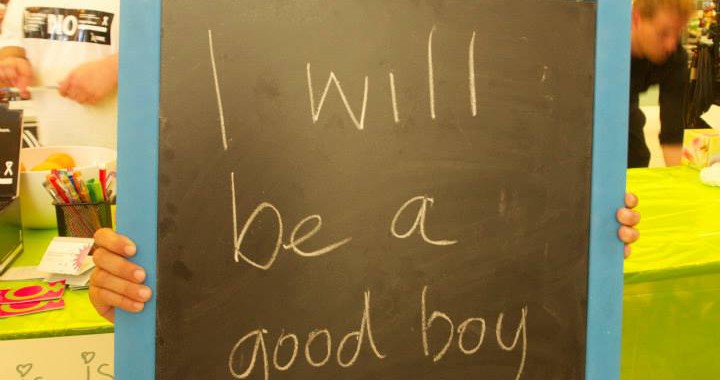 I will
be a
good boy
is is